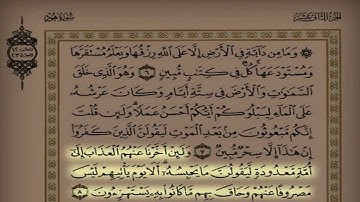 الجزء الثاني عشر
سورة هود
وَمَا مِن دَآبَّةٍ فِي ٱلْأَرْضِ إِلَّا عَلَى ٱللَّهِ رِزْقُهَا وَيَعْلَمُ مُسْتَقَرَّهَا
وَمُسْتَوْدَعَهَا كُلٌّ فِي كِتَٰبٍ مُّبِينٍ ٦ وَهُوَ ٱلَّذِي خَلَقَ
ٱلسَّمَٰوَٰتِ وَٱلْأَرْضَ فِي سِتَّةِ أَيَّامٍ وَكَانَ عَرْشُهُۥ
عَلَى ٱلْمَآءِ لِيَبْلُوَكُمْ أَيُّكُمْ أَحْسَنُ عَمَلًا وَلَئِن قُلْتَ
إِنَّكُم مَّبْعُوثُونَ مِنۢ بَعْدِ ٱلْمَوْتِ لَيَقُولَنَّ ٱلَّذِينَ كَفَرُوٓا۟
إِنْ هَٰذَآ إِلَّا سِحْرٌ مُّبِينٌ ٧ وَلَئِنْ أَخَّرْنَا عَنْهُمُ ٱلْعَذَابَ إِلَىٰٓ
أُمَّةٍ مَّعْدُودَةٍ لَّيَقُولُنَّ مَا يَحْبِسُهُۥٓ أَلَا يَوْمَ يَأْتِيهِمْ لَيْسَ
مَصْرُوفًا عَنْهُمْ وَحَاقَ بِهِم مَّا كَانُوا۟ بِهِۦ يَسْتَهْزِءُونَ ٨